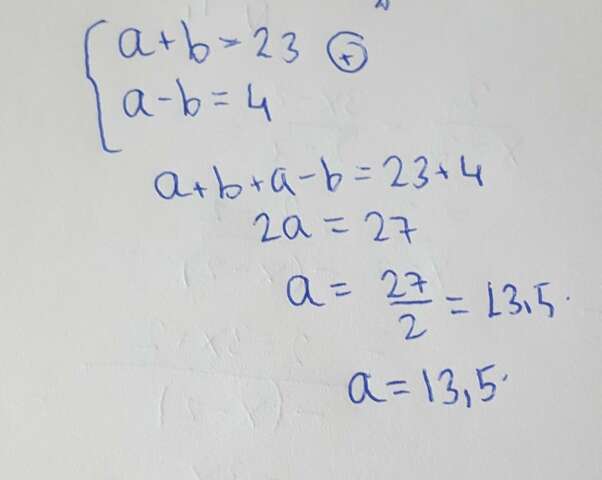 a+b=23 (+)
a-b=4
a+b+a-b=23+4
2a=27
a=27/2=13,5.
a=13,5.